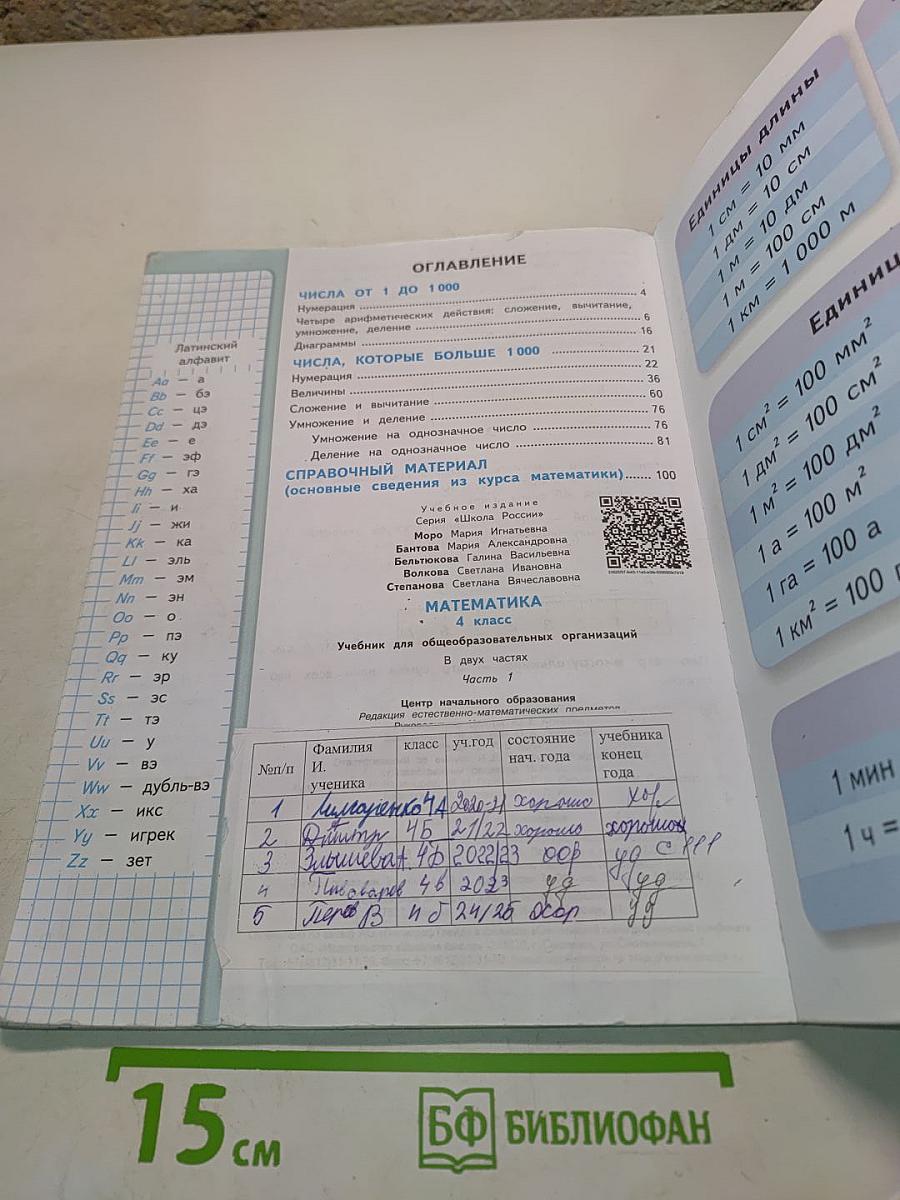 Латинский
алфавит
Aa — а
Bb — бэ
Cc — цэ
Dd — дэ
Ee — е
Ff — эф
Gg — гэ
Hh — ха
Ii — и
Jj — жи
Kk — ка
Ll — эль
Mm — эм
Nn — эн
Oo — о
Pp — пэ
Qq — ку
Rr — эр
Ss — эс
Tt — тэ
Uu — у
Vv — вэ
Ww — дубль-вэ
Xx — икс
Yy — игрек
Zz — зет
ОГЛАВЛЕНИЕ
ЧИСЛА ОТ 1 ДО 1 000
Нумерация 4
Четыре арифметических действия: сложение, вычитание,
умножение, деление 6
Диаграммы 16
ЧИСЛА, КОТОРЫЕ БОЛЬШЕ 1 000 21
Нумерация 22
Величины 36
Сложение и вычитание 60
Умножение и деление 76
Умножение на однозначное число 76
Деление на однозначное число 81
СПРАВОЧНЫЙ МАТЕРИАЛ
(основные сведения из курса математики) 100
Учебное издание
Серия «Школа России»
Моро Мария Игнатьевна
Бантова Мария Александровна
Бельтюкова Галина Васильевна
Волкова Светлана Ивановна
Степанова Светлана Вячеславовна
МАТЕМАТИКА
4 класс
Учебник для общеобразовательных организаций
В двух частях
Часть 1
Центр начального образования
Редакция естественно-математических предметов
№п/п Фамилия И. ученика класс уч.год состояние нач. года учебника конец года
1 4А 2020-21 хорошо хор
2 Дмитр 4Б 21/22 хорошо хорошо
3 2022/23 уд
4 Пивоваров 4в 2023 уд уд
5 Перов В 4б 24/25 хор уд
Единицы длины
1 см = 10 мм
1 дм = 10 см
1 м = 10 дм
1 м = 100 см
1 км = 1 000 м
Единиц
1 см² = 100 мм²
1 дм² = 100 см²
1 м² = 100 дм²
1 а = 100 м²
1 га = 100 а
1 км² = 100 г
1 мин
1 ч =
15 см
БФ БИБЛИОФАН